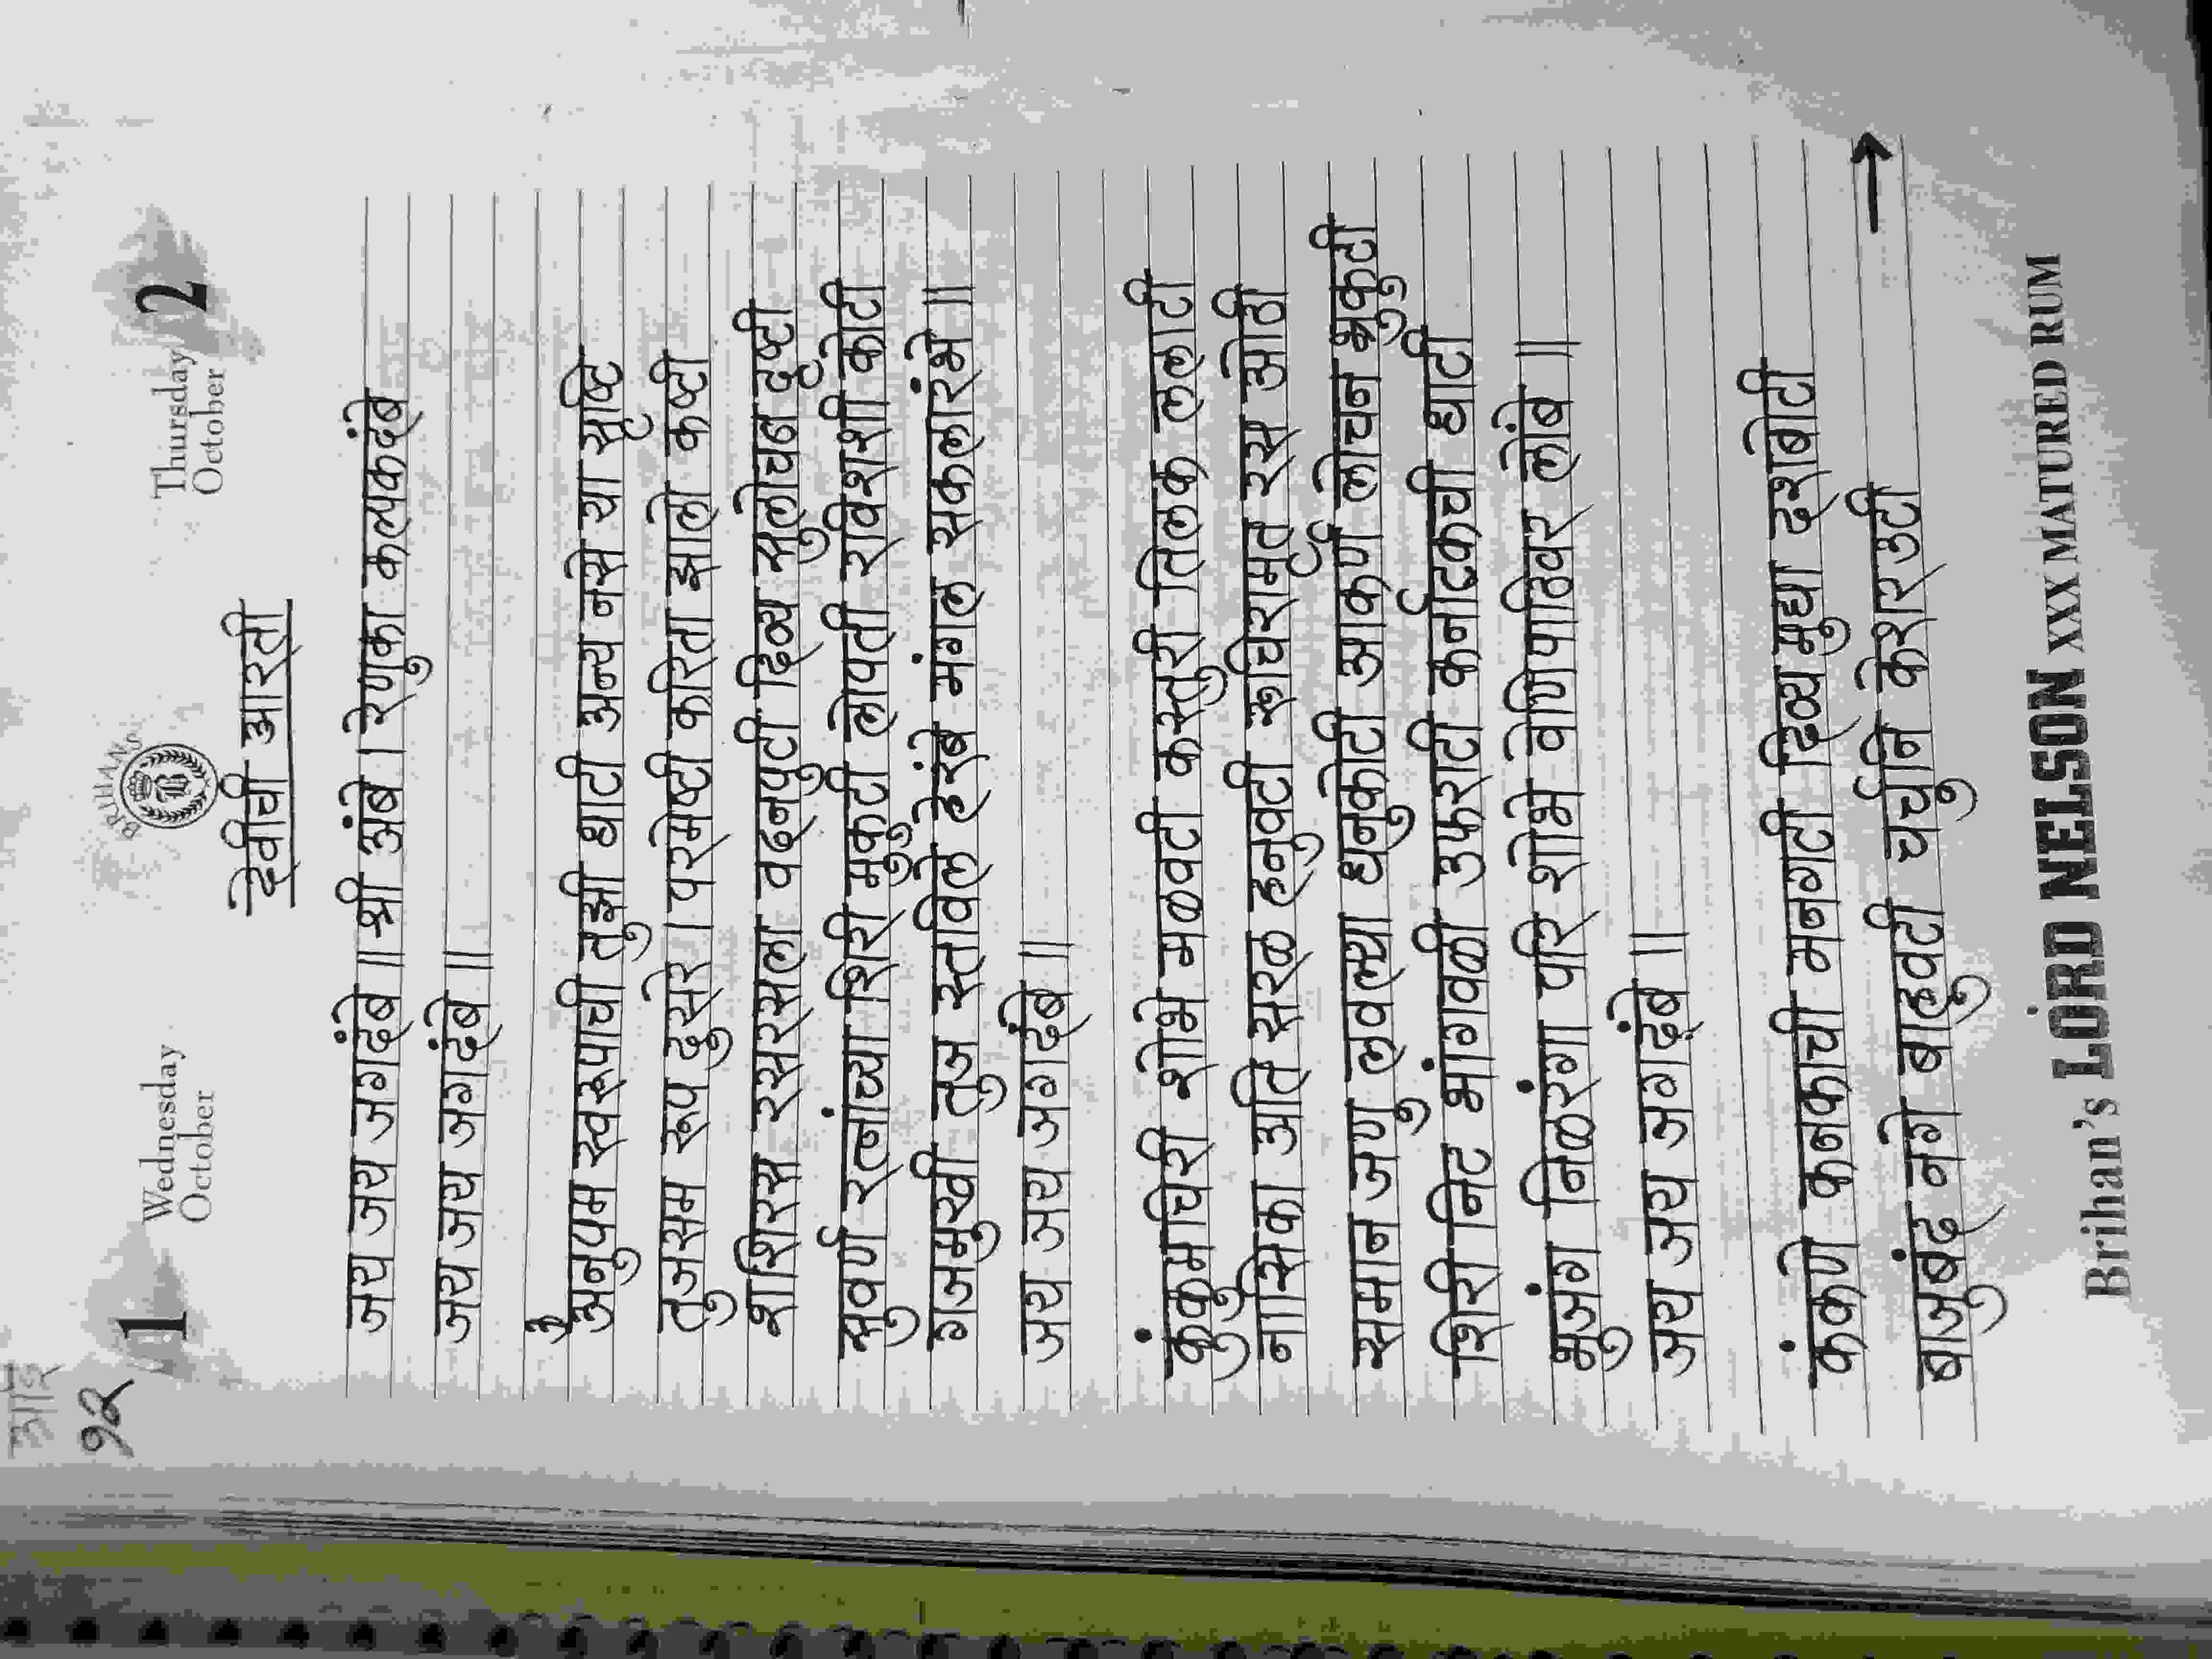 आई
१२
1 Wednesday October
BRIHANS
B
Thursday October 2
देवीची आरती
जय जय जगदंबे ॥ श्री अंबे । रेणुका कल्पकदंबे
जय जय जगदंबे ॥
अनुपम स्वरूपाची तुझी धाटी अन्य नसे या सृष्टि
तुजसम रूप दुसरे । परमेष्टी करिता झालो कष्टी
शशिरस रसरसला वदनपुटी दिव्य सुलोचन दृष्टी
सुवर्ण रत्नांच्या शिरी मुकुटी लोपती रविशशी कोटी
गजमुखी तुज स्तविले हेरंबे मंगल सकलारंभे ॥
जय जय जगदंबे ॥
कुंकुमचिरी शोभे मळवटी कस्तुरी तिलक ललाटी
नासिका अति सरळ हनुवटी रूचिरामृत रस ओठी
समान जणु लवल्या धनुकोटी आकर्ण लोचन भ्रुकुटी
शिरी निट भांगवळी उफराटी कर्नाटकची धाटी
भुजंग निळरंगा परि शोभे वेणिपाठिवर लोंबे ॥
जय जय जगदंबे ॥
कंकणे कनकाची मनगटी दिव्य मुद्या दशबोटी
बाजुबंद नगे बाहुवटी चर्चुनि केशर उटी →
Brihan's LORD NELSON XXX MATURED RUM